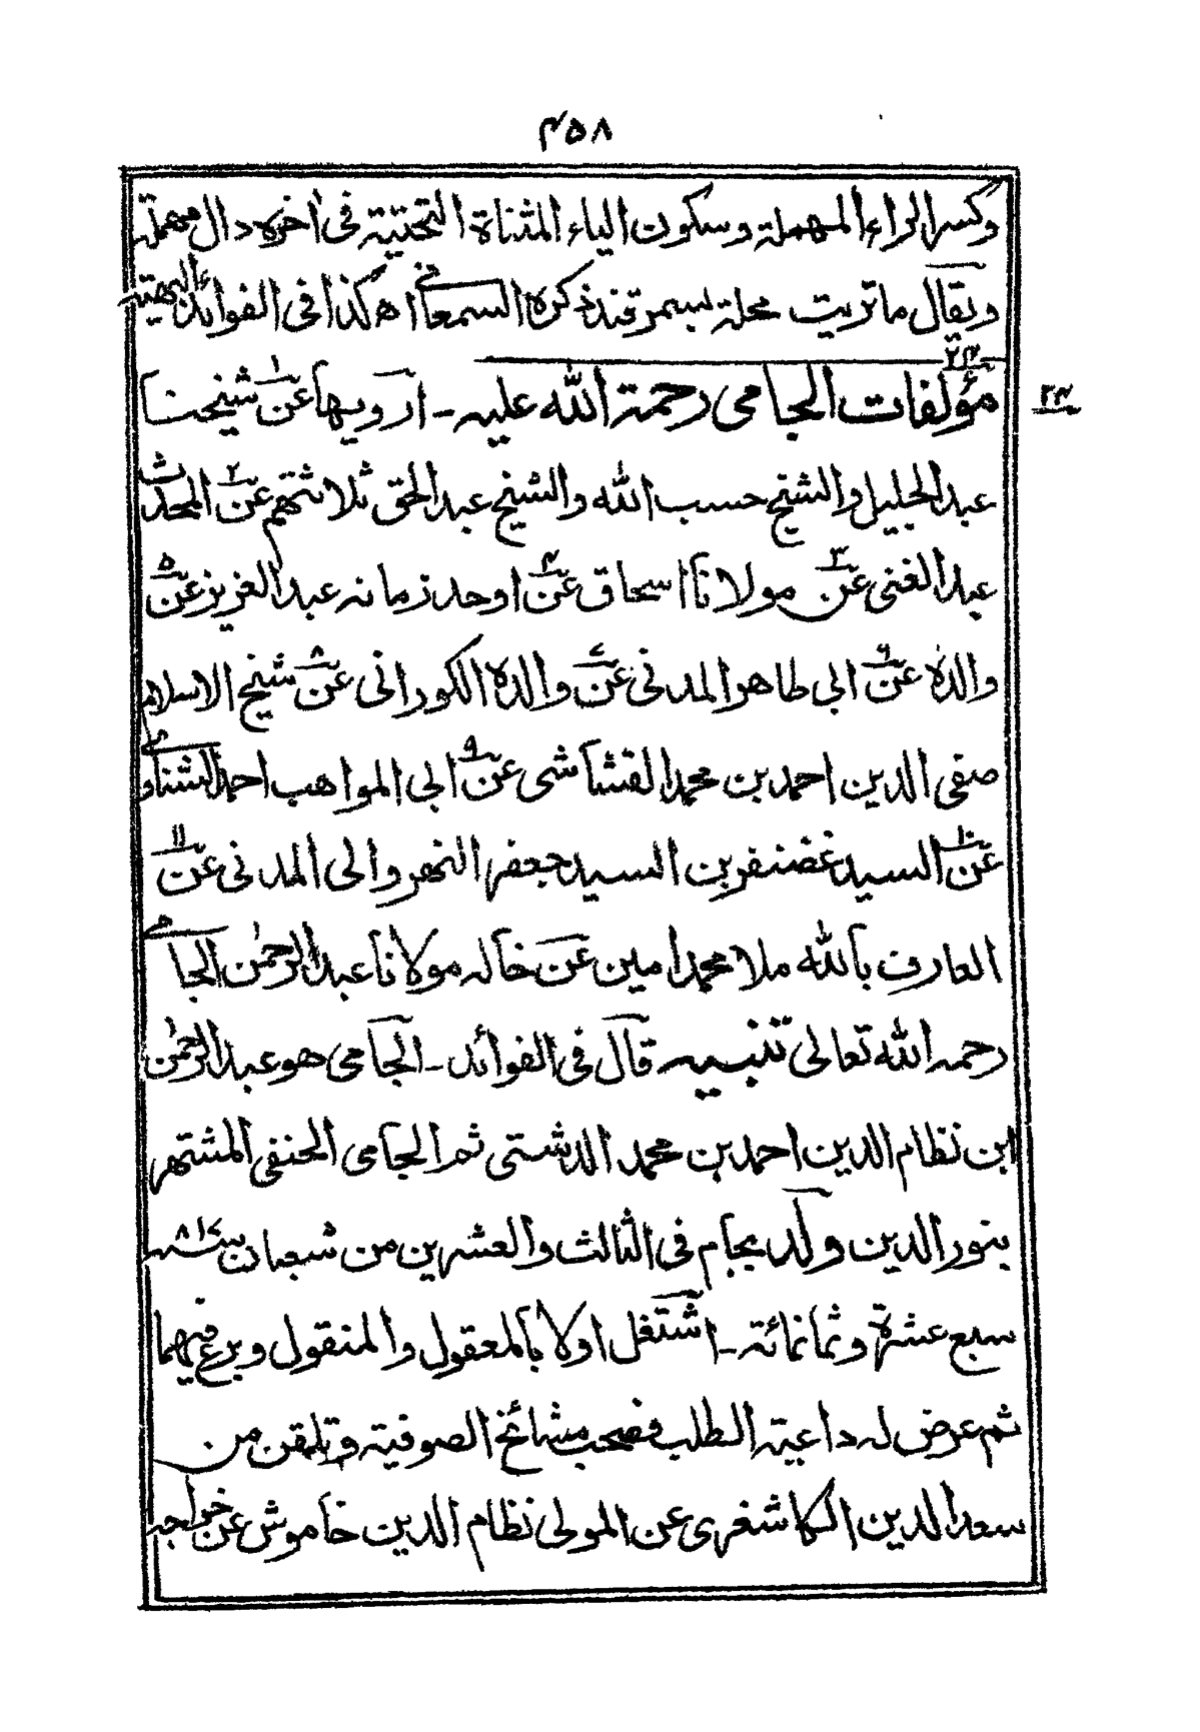 ۴۵۸
وكسر الراء المهملة وسكون الياء المثناة التحتية فى اٰخره دال مهملة
ويقال ماتريت محلة بسمرقند ذكره السمعانى اه كذا فى الفوائد البهية
۲۴
مؤلفات الجامى رحمة الله عليه ـ ارويها عن۱ شيخنا
۲۴
عبد الجليل والشيخ حسب الله والشيخ عبد الحق ثلاثتهم عن۲ المحدث
عبد الغنى عن۳ مولانا اسحاق عن۴ اوحد زمانه عبد العزيز عن۵
والده عن۶ ابى طاهر المدنى عن۷ والده الكورانى عن۸ شيخ الاسلام
صفى الدين احمد بن محمد القشاشى عن۹ ابى المواهب احمد الشناوى
عن۱۰ السيد غضنفر بن السيد جعفر النهروالى المدنى عن۱۱
العارف بالله ملا محمد امين عن خاله مولانا عبد الرحمٰن الجامى
رحمه الله تعالى تنبيه قال فى الفوائد ـ الجامى هو عبد الرحمٰن
ابن نظام الدين احمد بن محمد الدشتى ثم الجامى الحنفى المشتهر
بنور الدين ولد بجام فى الثالث والعشرين من شعبان سنة ۸۱۷
سبع عشرة وثمانمائة ـ اشتغل اولا بالمعقول والمنقول وبرع فيهما
ثم عرض له داعية الطلب فصحب مشائخ الصوفية وتلقن من
سعد الدين الكاشغرى عن المولى نظام الدين خاموش عن خواجه